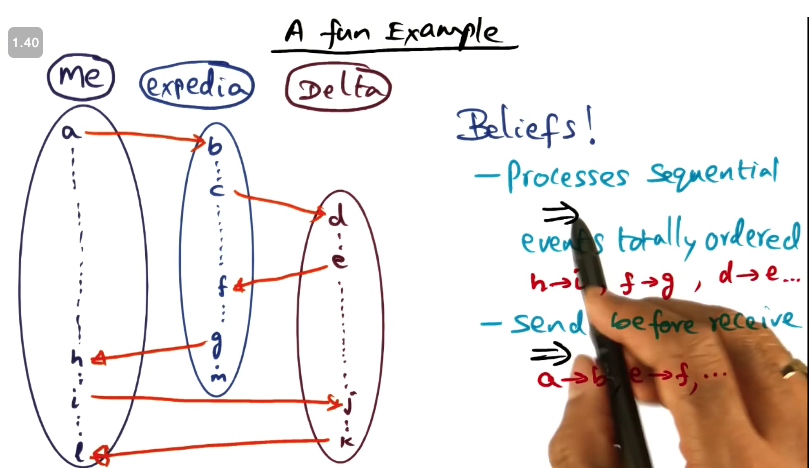 1.40
A fun Example
Me
expedia
Delta
a
b
c
d
e
f
g
h
m
i
j
k
l
Beliefs!
- Processes sequential
⇒
events totally ordered
h→i, f→g, d→e...
- Send before receive
⇒
a→b, e→f, ...